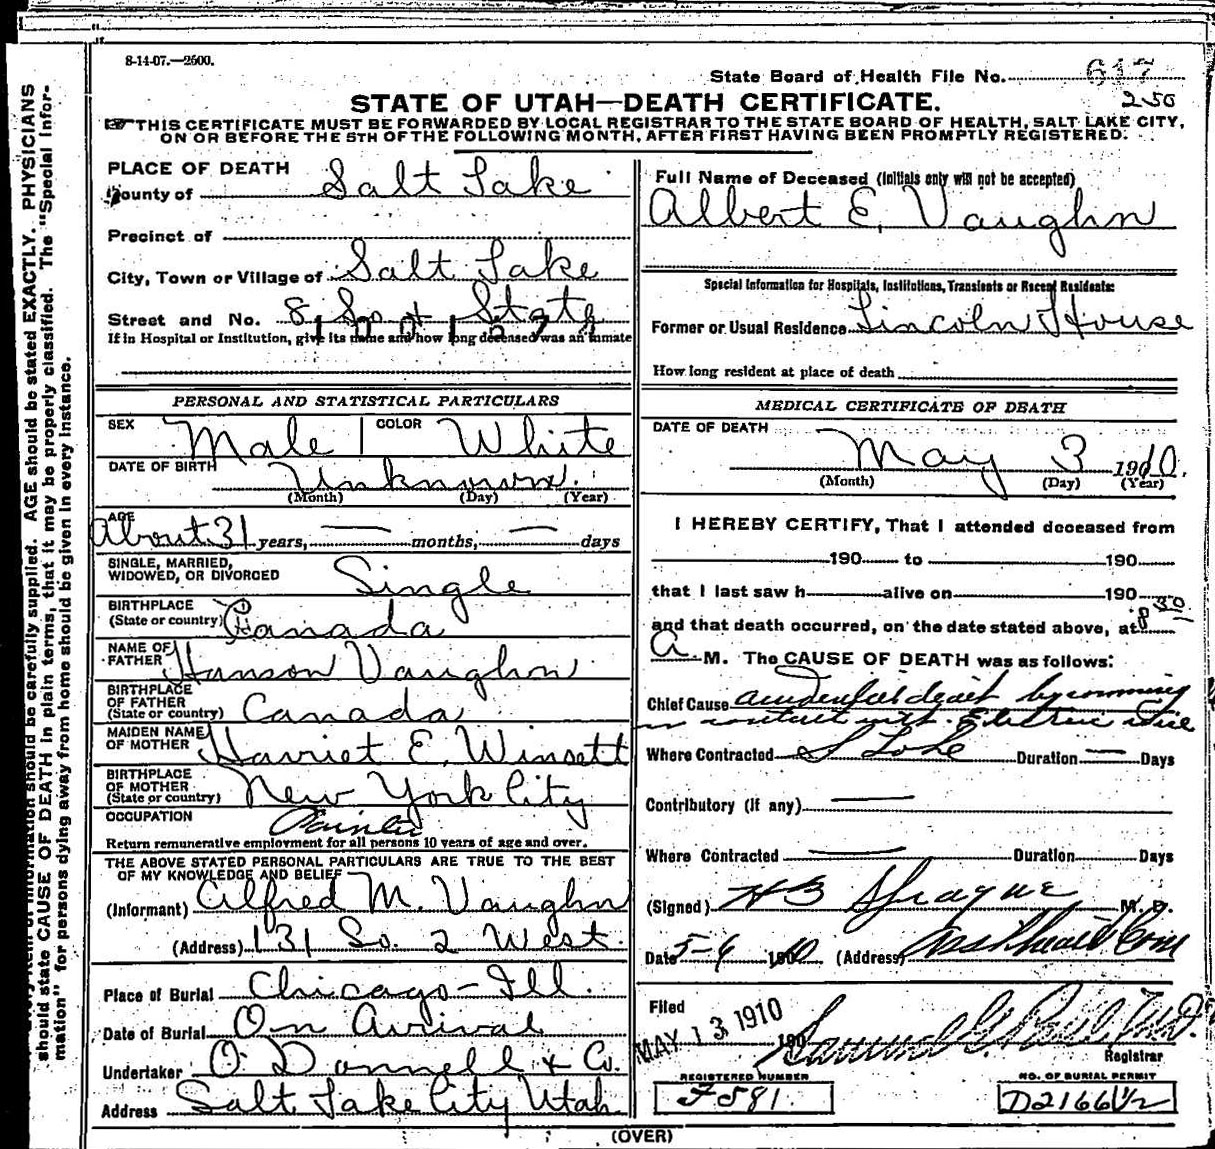 8-14-07.—2500.
State Board of Health File No. 617
250
STATE OF UTAH—DEATH CERTIFICATE.
THIS CERTIFICATE MUST BE FORWARDED BY LOCAL REGISTRAR TO THE STATE BOARD OF HEALTH, SALT LAKE CITY,
ON OR BEFORE THE 5TH OF THE FOLLOWING MONTH, AFTER FIRST HAVING BEEN PROMPTLY REGISTERED.
PLACE OF DEATH
County of Salt Lake
Precinct of
City, Town or Village of Salt Lake
Street and No. 8 So State
If in Hospital or Institution, give its name and how long deceased was an inmate
PERSONAL AND STATISTICAL PARTICULARS
SEX Male COLOR White
DATE OF BIRTH Unknown.
(Month) (Day) (Year)
AGE About 31 years, — months, — days
SINGLE, MARRIED,
WIDOWED, OR DIVORCED Single
BIRTHPLACE
(State or country) Canada
NAME OF
FATHER Hanson Vaughn
BIRTHPLACE
OF FATHER
(State or country) Canada
MAIDEN NAME
OF MOTHER Harriet E. Winsett
BIRTHPLACE
OF MOTHER
(State or country) New York City
OCCUPATION Painter
Return remunerative employment for all persons 10 years of age and over.
THE ABOVE STATED PERSONAL PARTICULARS ARE TRUE TO THE BEST
OF MY KNOWLEDGE AND BELIEF
(Informant) Alfred M. Vaughn
(Address) 131 So. 2 West
Place of Burial Chicago-Ill.
Date of Burial On Arrival
Undertaker O'Donnell & Co.
Address Salt Lake City Utah
Full Name of Deceased (Initials only will not be accepted)
Albert E. Vaughn
Special Information for Hospitals, Institutions, Transients or Recent Residents:
Former or Usual Residence Lincoln House
How long resident at place of death
MEDICAL CERTIFICATE OF DEATH
DATE OF DEATH
May 3 1910.
(Month) (Day) (Year)
I HEREBY CERTIFY, That I attended deceased from
190 to 190
that I last saw h alive on 190
and that death occurred, on the date stated above, at 8 30
A. M. The CAUSE OF DEATH was as follows:
Chief Cause accidental death by comming
in contact with Electric wire
Where Contracted S Lake Duration — Days
Contributory (if any) —
Where Contracted — Duration Days
(Signed) H B Sprague M. D.
Date 5-6 1910 (Address)
Filed
MAY 13 1910 190
Registrar
REGISTERED NUMBER
F 581
NO. OF BURIAL PERMIT
D2166 1/2
(OVER)
should state CAUSE OF DEATH in plain terms, that it may be properly classified. The "Special Infor-
mation" for persons dying away from home should be given in every instance.
information should be carefully supplied. AGE should be stated EXACTLY. PHYSICIANS